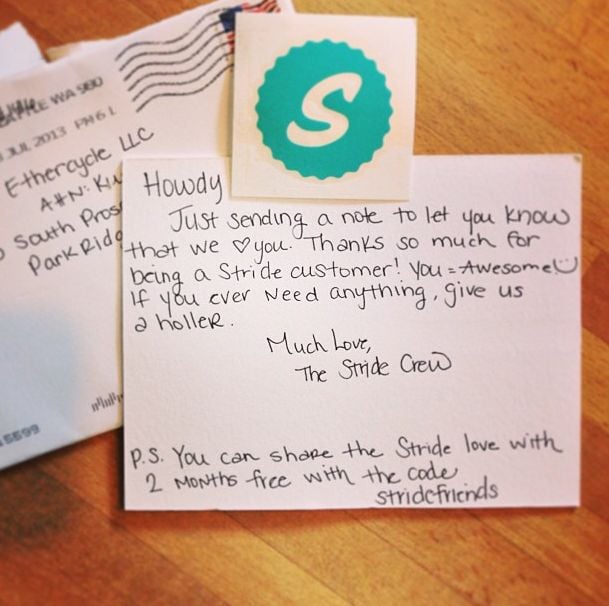 WA 980
JUL 2013 PM 6 L
Ethercycle LLC
Attn:
South
Park
S
Howdy
Just sending a note to let you know
that we ♡ you. Thanks so much for
being a Stride customer! You = Awesome!
If you ever need anything, give us
a holler.
Much Love,
The Stride Crew
P.S. You can share the Stride love with
2 months free with the code
stridefriends